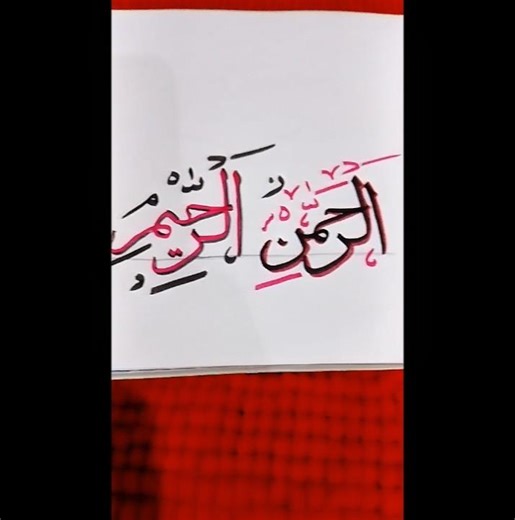 الرَّحْمٰنِ الرَّحِيْمِ